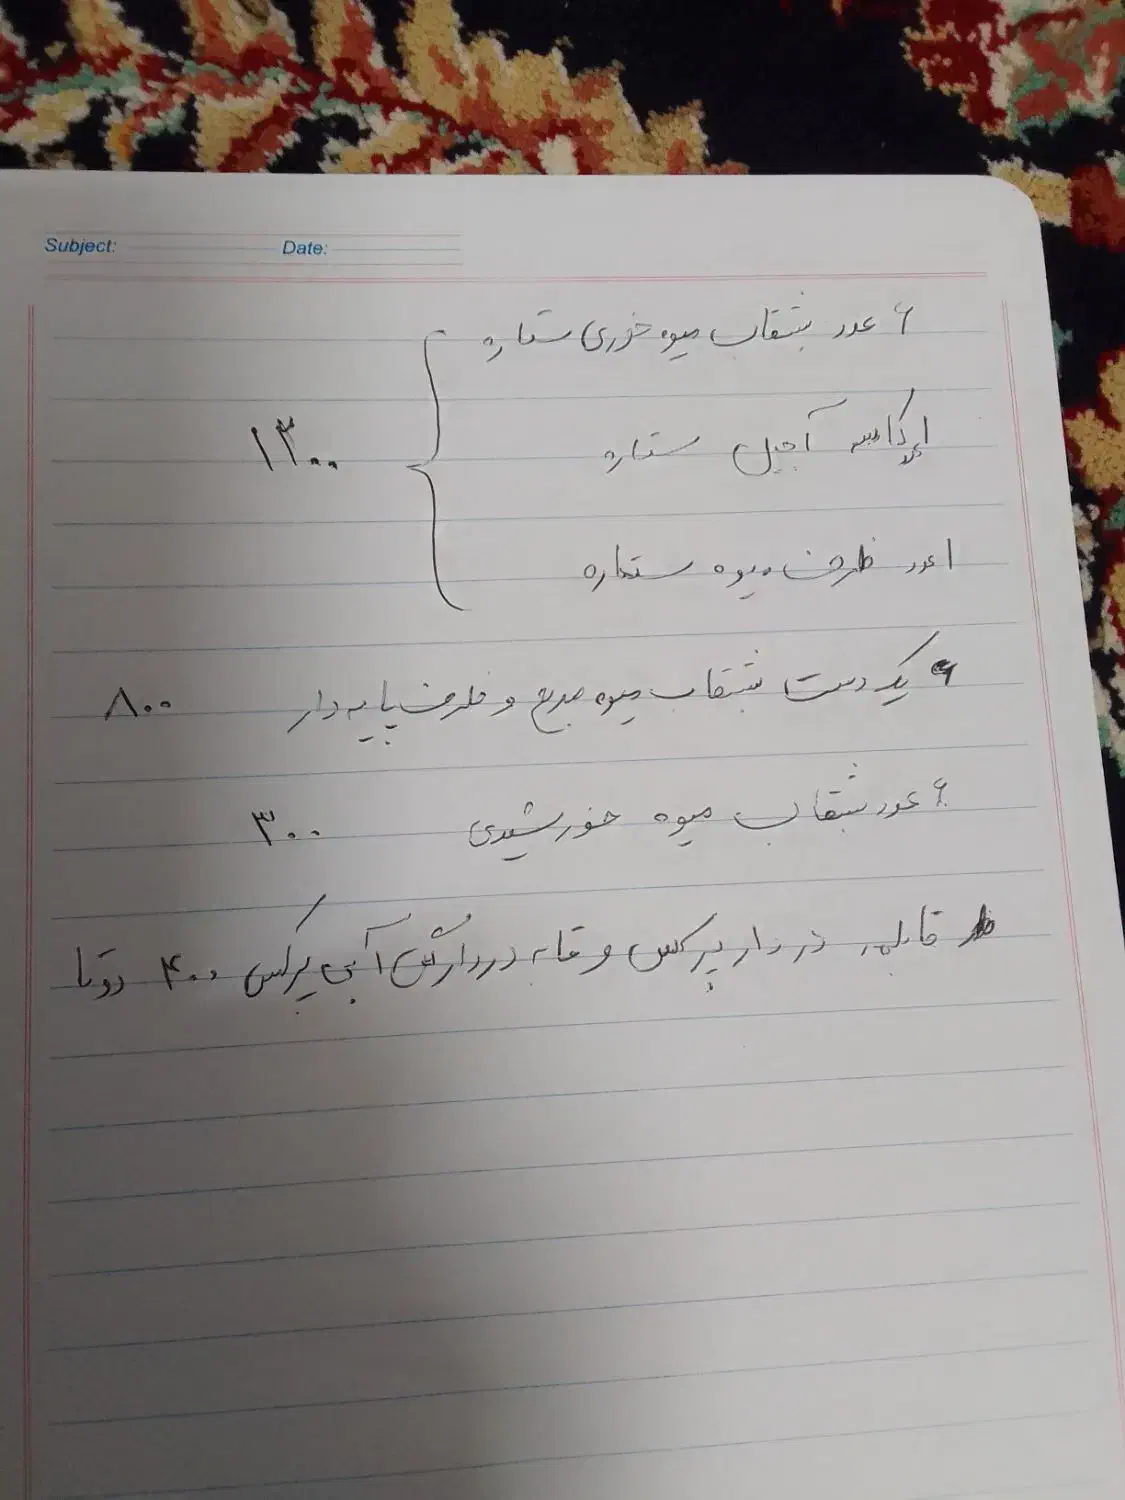 Subject: Date:
۶ عدد بشقاب میوه خوری ستاره
۱ عدد کاسه آجیل ستاره
۱۳۰۰
۱ عدد ظرف میوه ستاره
یک دست بشقاب میوه مربع و ظرف پایه دار ۸۰۰
۶ عدد بشقاب میوه خورشیدی ۳۰۰
قابلمه در دار پیرکس و در دار آبی پیرکس ۴۰۰ دوتا